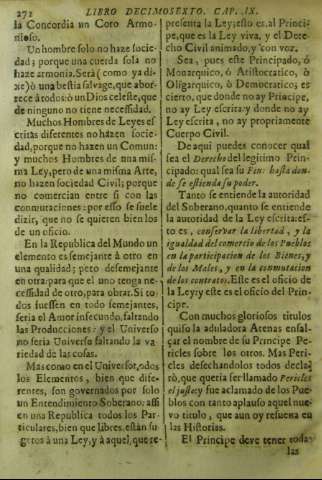 272 LIBRO DECIMOSEXTO. CAP. IX.
la Concordia un Coro Armo-
nioso.
Un hombre solo no haze socie-
dad; porque una cuerda sola no
haze armonia. Será (como ya di-
xe) ò una bestia salvage, que abor-
rece à todos: ò un Dios celeste, que
de ninguno no tiene necessidad.
Muchos Hombres de Leyes es-
critas diferentes no házen socie-
dad, porque no hazen un Comun:
y muchos Hombres de una mis-
ma Ley, pero de una misma Arte,
no hazen sociedad Civil; porque
no comercian entre si con las
conmutaciones: por esso se suele
dizir, que no se quieren bien los
de un oficio.
En la Republica del Mundo un
elemento es semejante à otro en
una qualidad; pero desemejante
en otra: para que el uno tenga ne-
cessidad de otro, para obrar. Si to-
dos fuessen en todo semejantes,
seria el Amor infecundo, faltando
las Producciones: y el Universo
no seria Universo faltando la va-
riedad de las cosas.
Mas como en el Universo, todos
los Elementos, bien que dife-
rentes, son governados por solo
un Entendimiento Soberano: assi
en una Republica todos los Par-
ticulares, bien que libres, están su-
getos à una Ley, y à aquel, que re-
presenta la Ley; esto es, al Princi-
pe, que es la Ley viva, y el Dere-
cho Civil animado, y con voz.
Sea, pues este Principado, ò
Monarquico, ò Aristocratico, ò
Oligarquico, ò Democratico; es
cierto, que donde no ay Principe,
no ay Ley escrita: y donde no ay
Ley escrita, no ay propriamente
Cuerpo Civil.
De aqui puedes conocer qual
sea el Derecho del legitimo Prin-
cipado: qual sea su Fin: hasta don-
de se estienda su poder.
Tanto se entiende la autoridad
del Soberano, quanto se entiende
la autoridad de la Ley escrita: es-
to es, conservar la libertad, y la
igualdad del comercio de los Pueblos
en la participacion de los Bienes, y
de los Males, y en la conmutacion
de los contratos. Este es el oficio de
la Ley: y este es el oficio del Prin-
cipe.
Con muchos gloriosos titulos
quiso la aduladora Atenas ensal-
çar el nombre de su Principe Pe-
ricles sobre los otros. Mas Peri-
cles desechandolos todos decla-
rò, que queria ser llamado Pericles
el justo: y fue aclamado de los Pue-
blos con tanto aplauso aquel nue-
vo titulo, que aun oy resuena en
las Historias.
El Principe deve tener todas
las